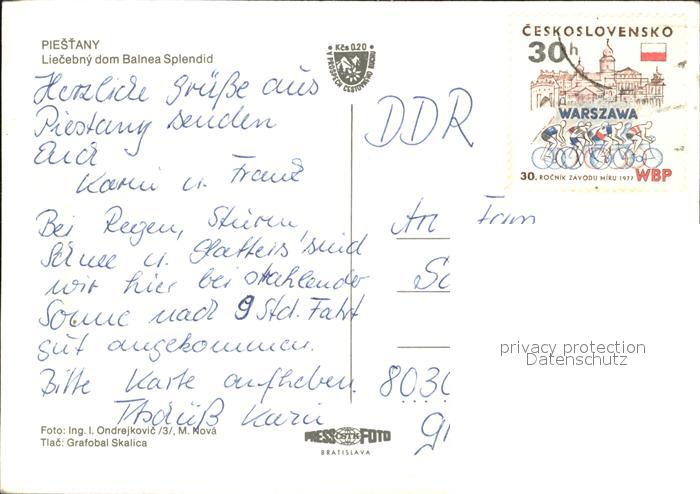 PIEŠŤANY
Liečebný dom Balnea Splendid
Kčs 0.20
V PROSPECH CESTOVNÉHO RUCHU
ČESKOSLOVENSKO
30h
WARSZAWA
30. ROČNÍK ZÁVODU MÍRU 1977 WBP
Herzliche Grüße aus
Piestany senden
Euch
Karin u. Franz
DDR
Bei Regen, Sturm,
Schnee u. Glatteis sind
wir hier bei strahlender
Sonne nach 9 Std. Fahrt
gut angekommen.
Bitte Karte aufheben.
Karin
An Fam
Sc
8030
privacy protection
Datenschutz
Foto: Ing. I. Ondrejkovič /3/, M. Nová
Tlač: Grafobal Skalica
PRESS ČSTK FOTO
BRATISLAVA